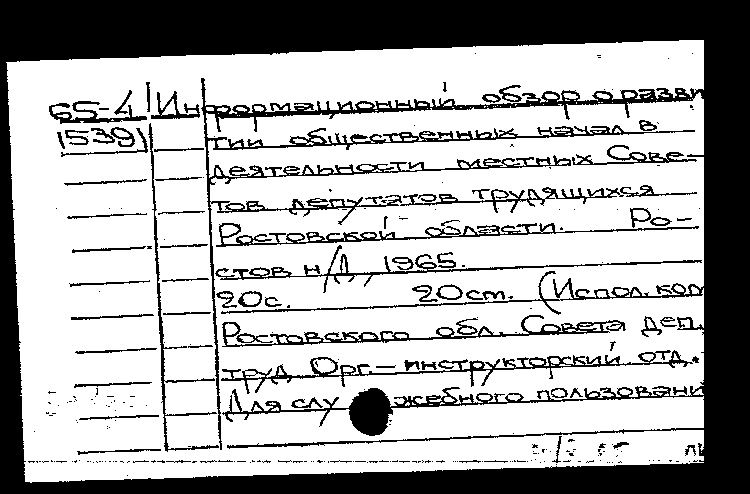 65-4 Информационный обзор о разви
15391 тии общественных начал в
деятельности местных Сове-
тов депутатов трудящихся
Ростовской области. Ро-
стов н/Д, 1965.
20с. 20см. (Испол. ком
Ростовского обл. Совета деп.
труд Орг.-инструкторский отд.
Для служебного пользовани